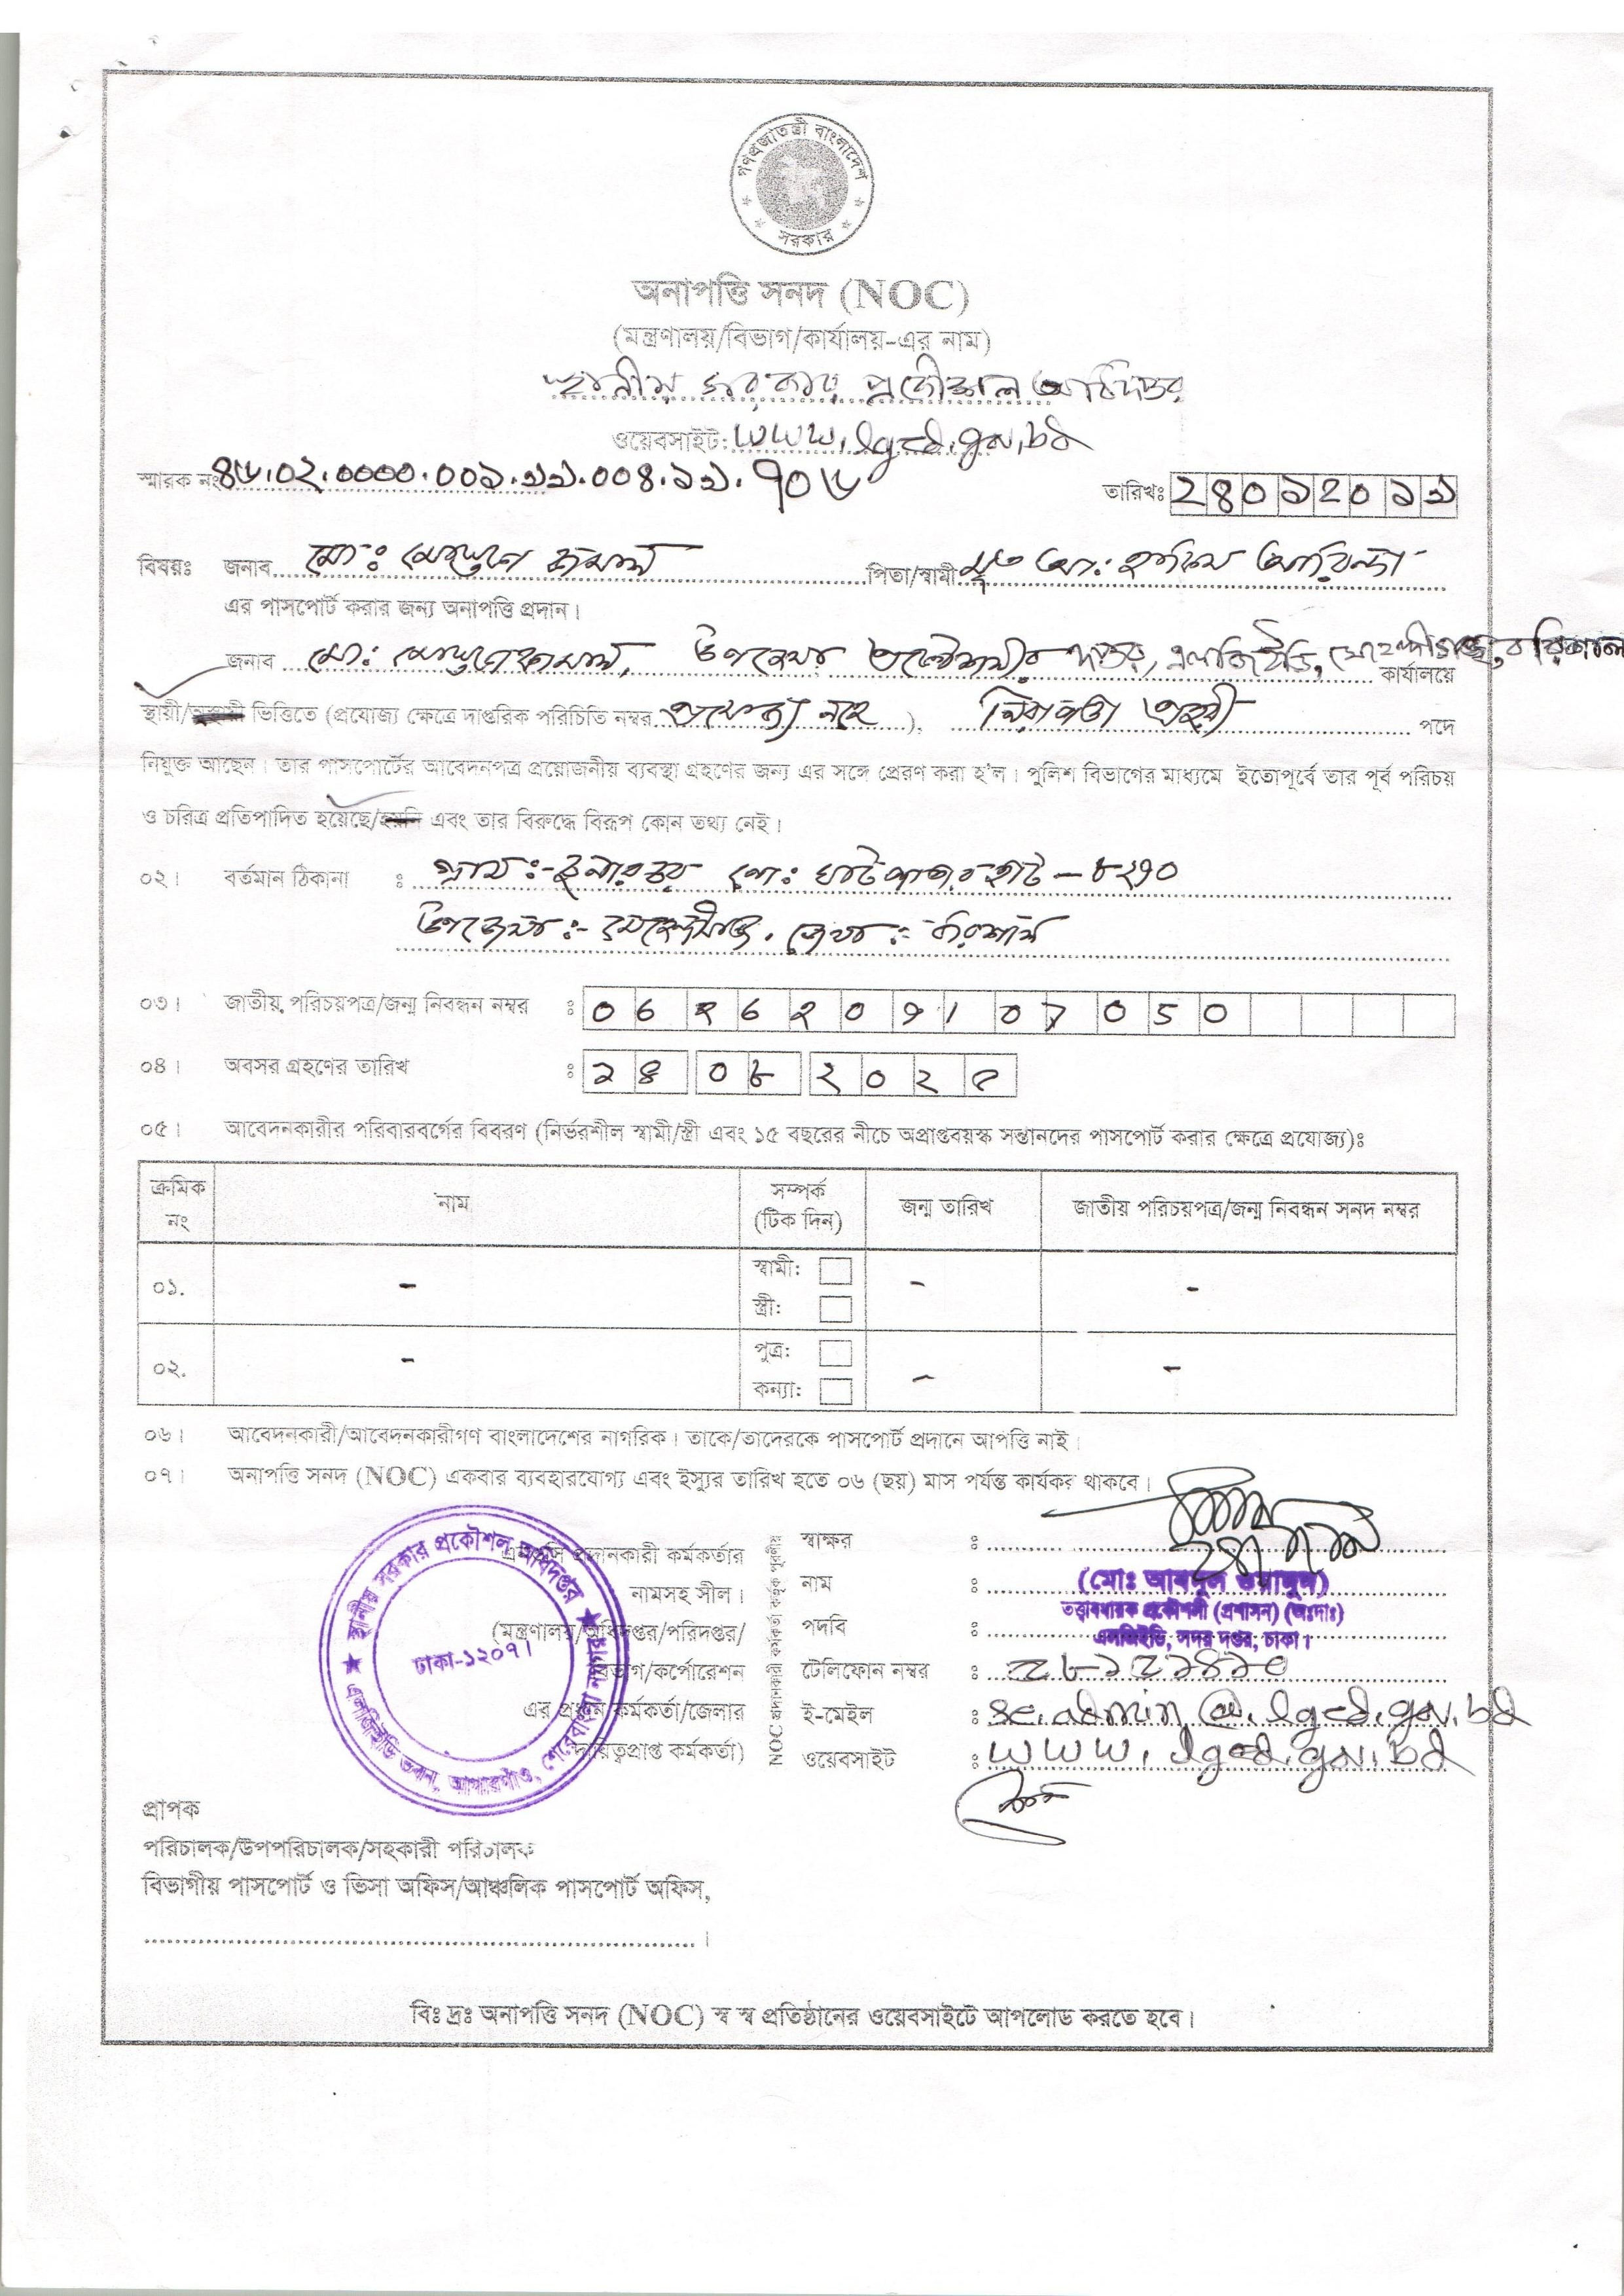 গণপ্রজাতন্ত্রী বাংলাদেশ
সরকার
অনাপত্তি সনদ (NOC)
(মন্ত্রণালয়/বিভাগ/কার্যালয়-এর নাম)
স্থানীয় সরকার প্রকৌশল অধিদপ্তর
ওয়েবসাইট: www.lged.gov.bd
স্মারক নং ৪৬.০২.০০০০.০০১.১১.০০৪.১১.৭০৬
তারিখঃ
বিষয়ঃ জনাব মোঃ মোস্তফা কামাল পিতা/স্বামী মৃত আঃ
এর পাসপোর্ট করার জন্য অনাপত্তি প্রদান।
জনাব মোঃ মোস্তফা কামাল, উপজেলা প্রকৌশলীর দপ্তর, এলজিইডি, মেহেন্দীগঞ্জ, বরিশাল কার্যালয়ে
স্থায়ী/অস্থায়ী ভিত্তিতে (প্রযোজ্য ক্ষেত্রে দাপ্তরিক পরিচিতি নম্বর প্রযোজ্য নহে ), নিরাপত্তা প্রহরী পদে
নিযুক্ত আছেন। তার পাসপোর্টের আবেদনপত্র প্রয়োজনীয় ব্যবস্থা গ্রহণের জন্য এর সঙ্গে প্রেরণ করা হ'ল। পুলিশ বিভাগের মাধ্যমে ইতোপূর্বে তার পূর্ব পরিচয়
ও চরিত্র প্রতিপাদিত হয়েছে/হয়নি এবং তার বিরুদ্ধে বিরূপ কোন তথ্য নেই।
০২। বর্তমান ঠিকানা : গ্রাম:- পো: - ৮২৭০
উপজেলা:- মেহেন্দীগঞ্জ, জেলা:- বরিশাল
০৩। জাতীয় পরিচয়পত্র/জন্ম নিবন্ধন নম্বর :
০৪। অবসর গ্রহণের তারিখ :
০৫। আবেদনকারীর পরিবারবর্গের বিবরণ (নির্ভরশীল স্বামী/স্ত্রী এবং ১৫ বছরের নীচে অপ্রাপ্তবয়স্ক সন্তানদের পাসপোর্ট করার ক্ষেত্রে প্রযোজ্য)ঃ
ক্রমিক নং নাম সম্পর্ক (টিক দিন) জন্ম তারিখ জাতীয় পরিচয়পত্র/জন্ম নিবন্ধন সনদ নম্বর
০১. - স্বামী: - -
স্ত্রী:
০২. - পুত্র: - -
কন্যা:
০৬। আবেদনকারী/আবেদনকারীগণ বাংলাদেশের নাগরিক। তাকে/তাদেরকে পাসপোর্ট প্রদানে আপত্তি নাই।
০৭। অনাপত্তি সনদ (NOC) একবার ব্যবহারযোগ্য এবং ইস্যুর তারিখ হতে ০৬ (ছয়) মাস পর্যন্ত কার্যকর থাকবে।
স্থানীয় সরকার প্রকৌশল অধিদপ্তর
ঢাকা-১২০৭।
এলজিইডি ভবন, আগারগাঁও, শেরেবাংলা নগর
প্রদানকারী কর্মকর্তার
নামসহ সীল।
(মন্ত্রণালয়/অধিদপ্তর/পরিদপ্তর/
বিভাগ/কর্পোরেশন
এর প্রধান কর্মকর্তা/জেলার
দায়িত্বপ্রাপ্ত কর্মকর্তা)
NOC প্রদানকারী কর্মকর্তা কর্তৃক পূরণীয়
স্বাক্ষর :
নাম : (মোঃ আবদুল ওয়াদুদ)
পদবি : তত্ত্বাবধায়ক প্রকৌশলী (প্রশাসন) (অঃদাঃ)
এলজিইডি, সদর দপ্তর, ঢাকা।
টেলিফোন নম্বর :
ই-মেইল : se.admin@lged.gov.bd
ওয়েবসাইট : www.lged.gov.bd
প্রাপক
পরিচালক/উপপরিচালক/সহকারী পরিচালক
বিভাগীয় পাসপোর্ট ও ভিসা অফিস/আঞ্চলিক পাসপোর্ট অফিস,
বিঃ দ্রঃ অনাপত্তি সনদ (NOC) স্ব স্ব প্রতিষ্ঠানের ওয়েবসাইটে আপলোড করতে হবে।